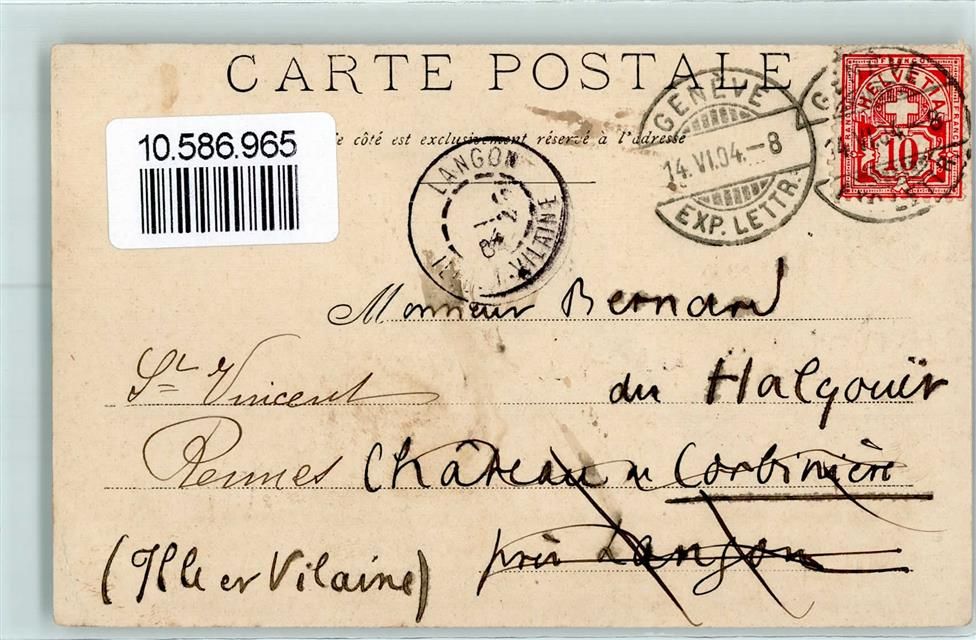 CARTE POSTALE
10.586.965
côté est exclusivement réservé à l'adresse
LANGON
04
ILLE-ET-VILAINE
GENÈVE
14.VI.04.-8
EXP. LETTR.
FRANCO
HELVETIA
10
Monsieur Bernard
St Vincent du Halgouët
Rennes Château de Corbinière
(Ille et Vilaine) près Langon